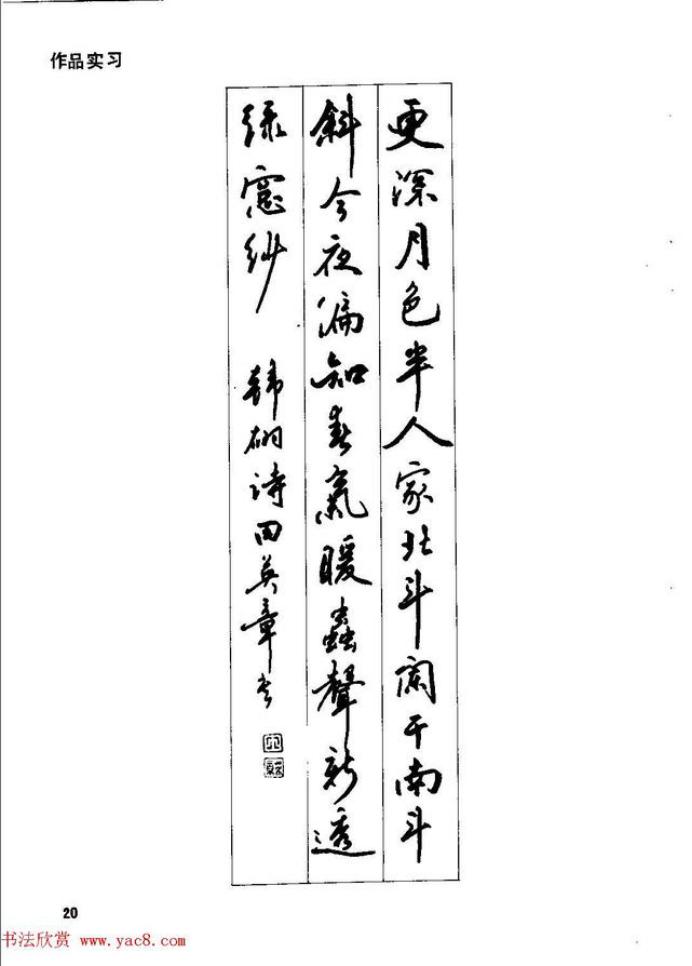 作品实习
更深月色半人家北斗闌干南斗
斜今夜偏知春氣暖蟲聲新透
綠窻紗 韓诗田英章书
20
书法欣赏 www.yac8.com